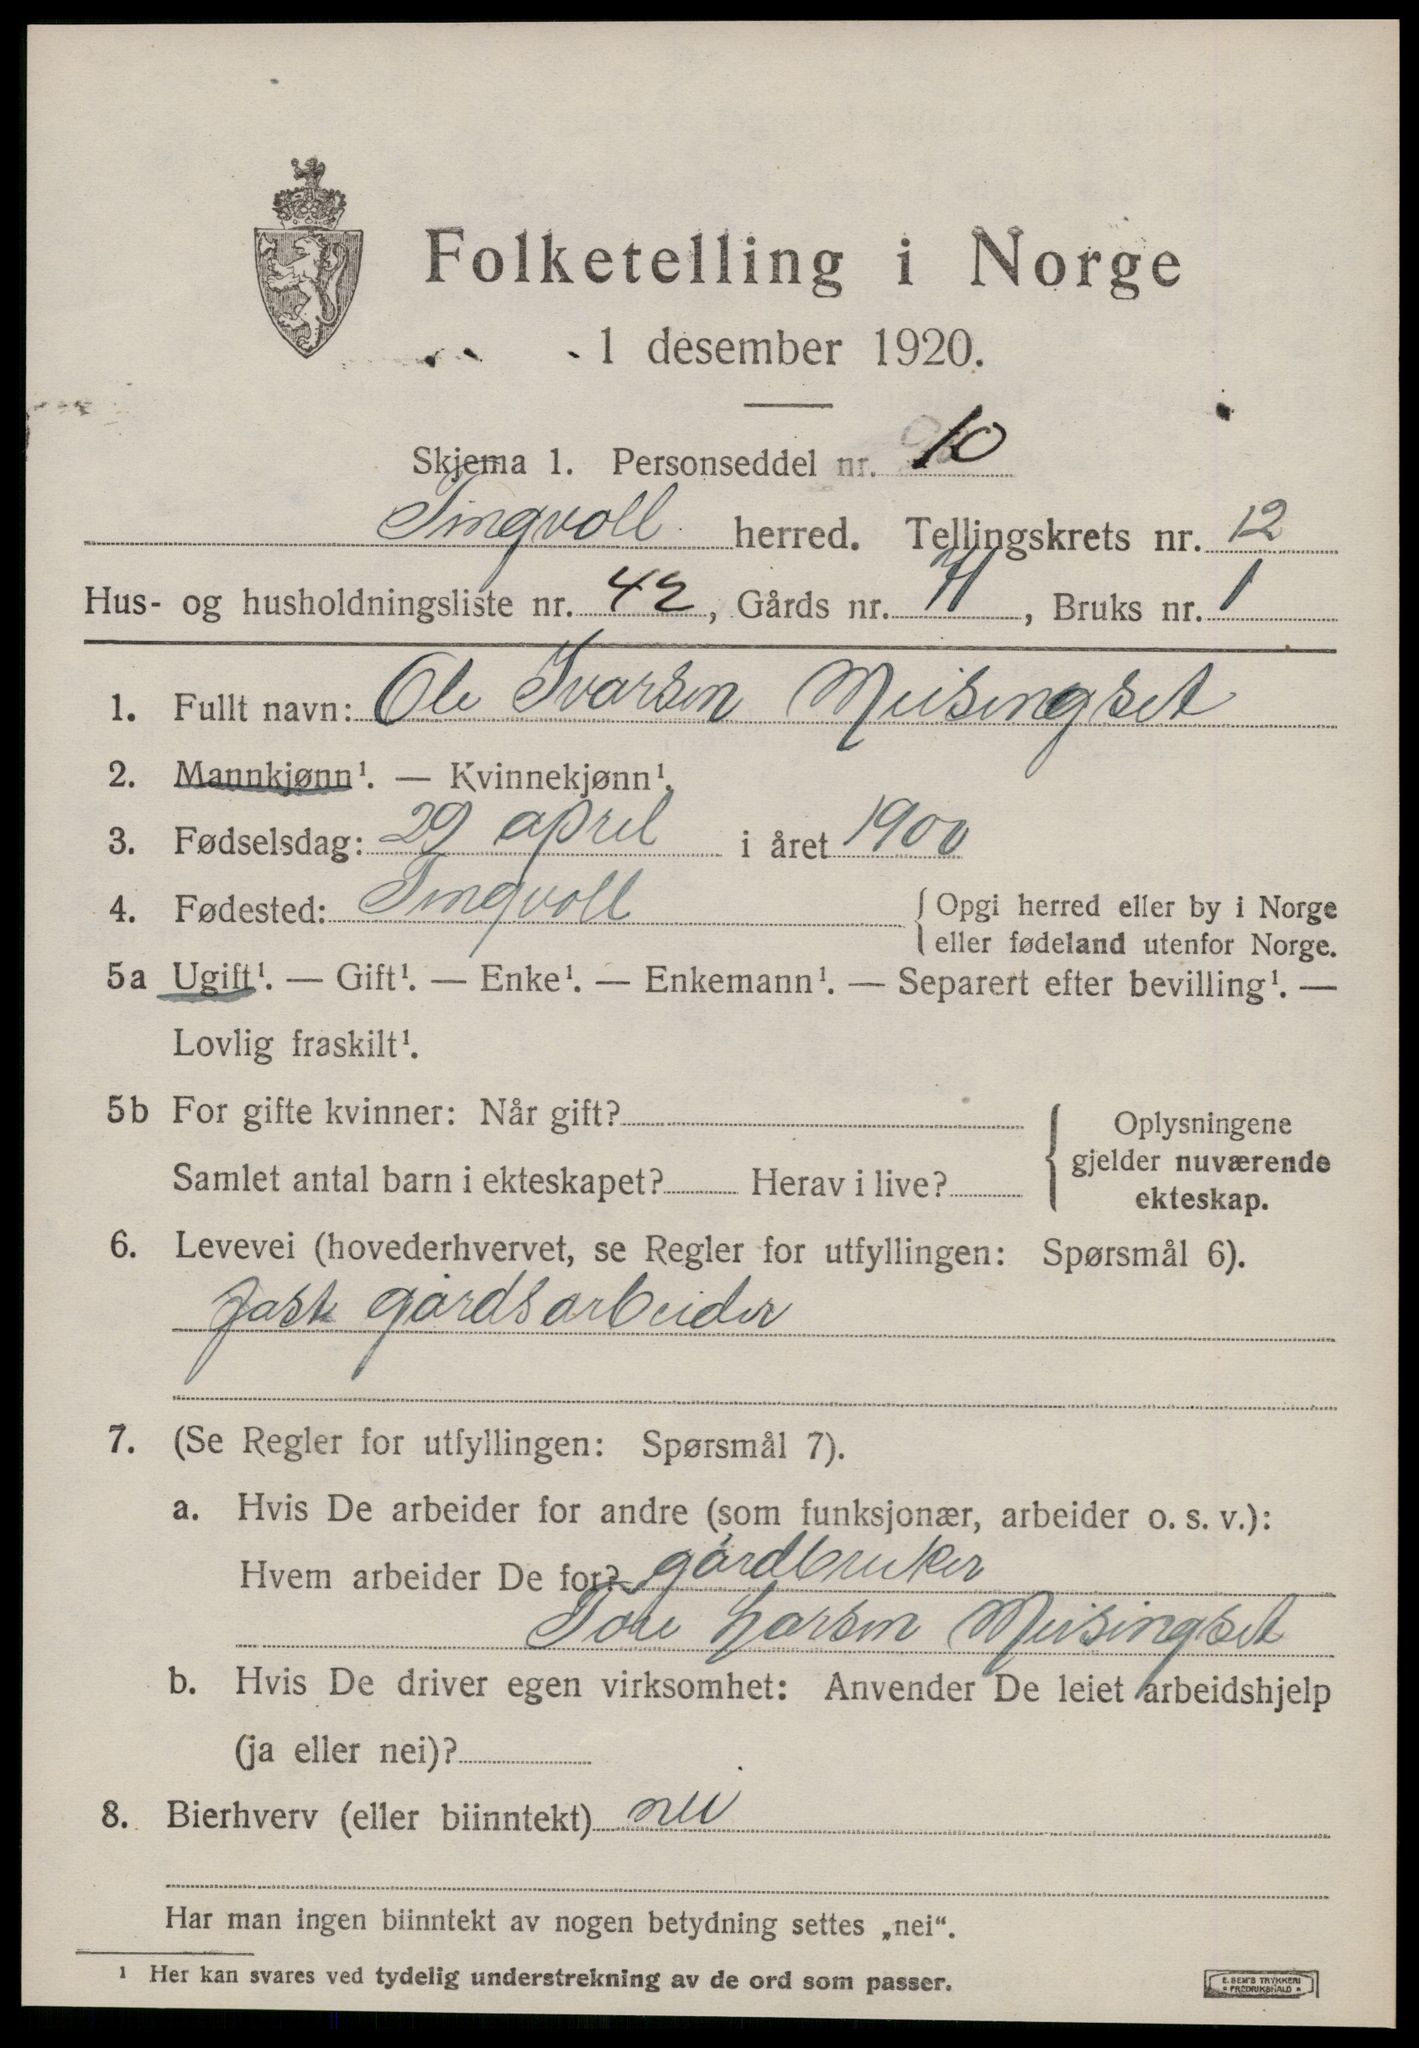 Folketelling i Norge
1 desember 1920.
Skjema 1. Personseddel nr. 10
Tingvoll herred. Tellingskrets nr. 12
Hus- og husholdningsliste nr. 42, Gårds nr. 71, Bruks nr. 1
1. Fullt navn: Ole Ivarsen Meisingset
2. Mannkjønn¹. — Kvinnekjønn¹.
3. Fødselsdag: 29 april i året 1900
4. Fødested: Tingvoll { Opgi herred eller by i Norge
eller fødeland utenfor Norge.
5a Ugift¹. — Gift¹. — Enke¹. — Enkemann¹. — Separert efter bevilling¹. —
Lovlig fraskilt¹.
5b For gifte kvinner: Når gift?
Samlet antal barn i ekteskapet? Herav i live?
{ Oplysningene
gjelder nuværende
ekteskap.
6. Levevei (hovederhvervet, se Regler for utfyllingen: Spørsmål 6).
fast gårdsarbeider
7. (Se Regler for utfyllingen: Spørsmål 7).
a. Hvis De arbeider for andre (som funksjonær, arbeider o. s. v.):
Hvem arbeider De for? gårdbruker
Tore Larsen Meisingset
b. Hvis De driver egen virksomhet: Anvender De leiet arbeidshjelp
(ja eller nei)?
8. Bierhverv (eller biinntekt) nei
Har man ingen biinntekt av nogen betydning settes „nei“.
¹ Her kan svares ved tydelig understrekning av de ord som passer.
E. SEM'S TRYKKERI
* FREDRIKSHALD *